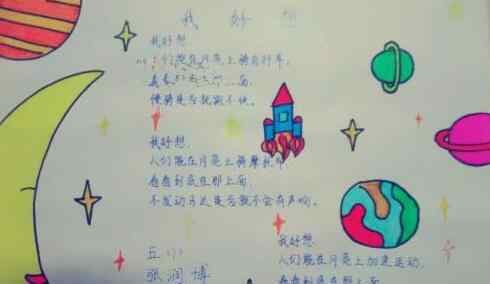 我好想
我好想
们能在月亮上骑自行车，
看看 面，
慢骑是否就骑不快。
我好想，
人们能在月亮上骑摩托车
看看到底在那上面，
不发动马达是否就不会有声响。
五(1)
张润博
我好想，
人们能在月亮上加速运动，
看看到底在那上面